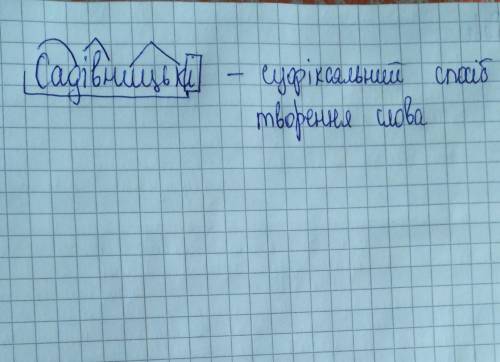 Садівницький - суфіксальний спосіб
творення слова